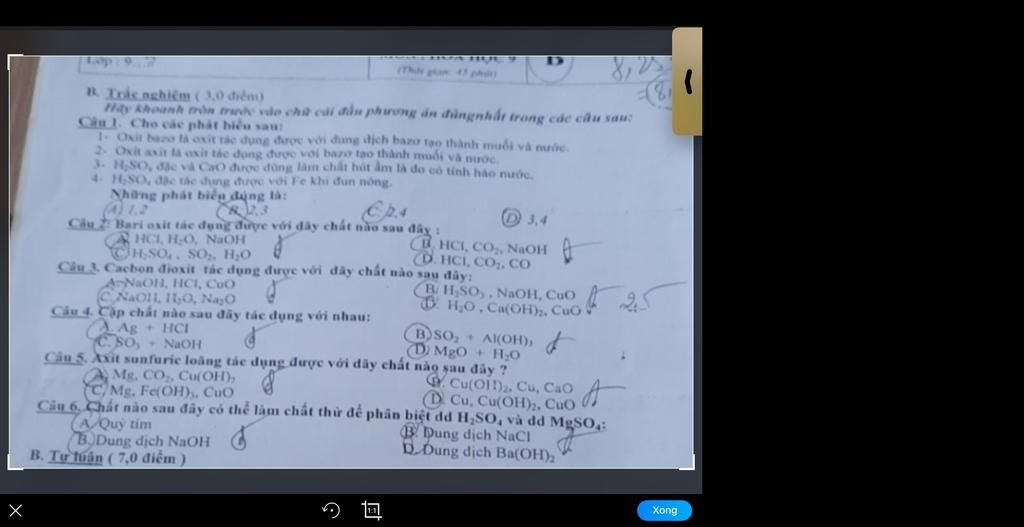 Lớp : 9
(Thời gian: 45 phút)
B
8,25
B. Trắc nghiệm ( 3,0 điểm)
Hãy khoanh tròn trước vào chữ cái đầu phương án đúngnhất trong các câu sau:
Câu 1. Cho các phát biểu sau:
1- Oxit bazơ là oxit tác dụng được với dung dịch bazơ tạo thành muối và nước.
2- Oxit axit là oxit tác dụng được với bazơ tạo thành muối và nước.
3- H₂SO₄ đặc và CaO được dùng làm chất hút ẩm là do có tính háo nước.
4- H₂SO₄ đặc tác dụng được với Fe khi đun nóng.
Những phát biểu đúng là:
A. 1,2 B. 2,3 C. 2,4 D. 3,4
Câu 2: Bari oxit tác dụng được với dãy chất nào sau đây :
A. HCl, H₂O, NaOH B. HCl, CO₂, NaOH
C. H₂SO₄ , SO₂, H₂O D. HCl, CO₂, CO
Câu 3. Cacbon đioxit tác dụng được với dãy chất nào sau đây:
A. NaOH, HCl, CuO B. H₂SO₃ , NaOH, CuO
C. NaOH, H₂O, Na₂O D. H₂O , Ca(OH)₂, CuO
2,5
Câu 4. Cặp chất nào sau đây tác dụng với nhau:
A. Ag + HCl B. SO₂ + Al(OH)₃
C. SO₃ + NaOH D. MgO + H₂O
Câu 5. Axit sunfuric loãng tác dụng được với dãy chất nào sau đây ?
A. Mg, CO₂, Cu(OH)₂ B. Cu(OH)₂, Cu, CaO
C. Mg, Fe(OH)₃, CuO D. Cu, Cu(OH)₂, CuO
Câu 6. Chất nào sau đây có thể làm chất thử để phân biệt dd H₂SO₄ và dd MgSO₄:
A. Quỳ tím B. Dung dịch NaCl
B. Dung dịch NaOH D. Dung dịch Ba(OH)₂
B. Tự luận ( 7,0 điểm )
1:1
Xong